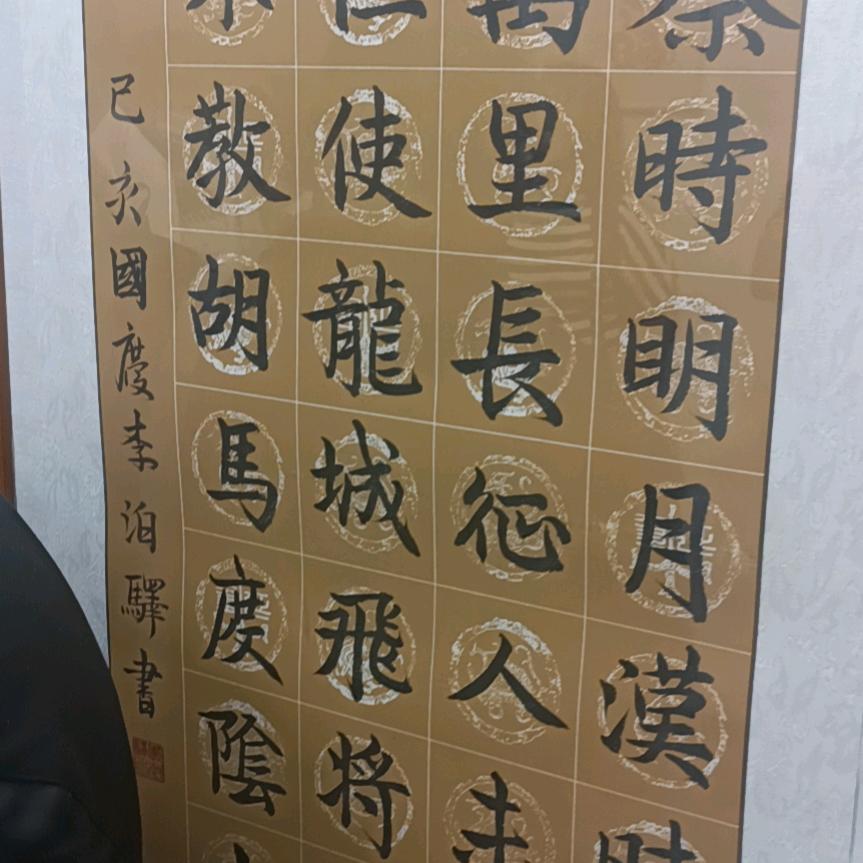 秦時明月漢時
萬里長征人未
但使龍城飛將
不教胡馬度陰
己亥國慶李泊驛書